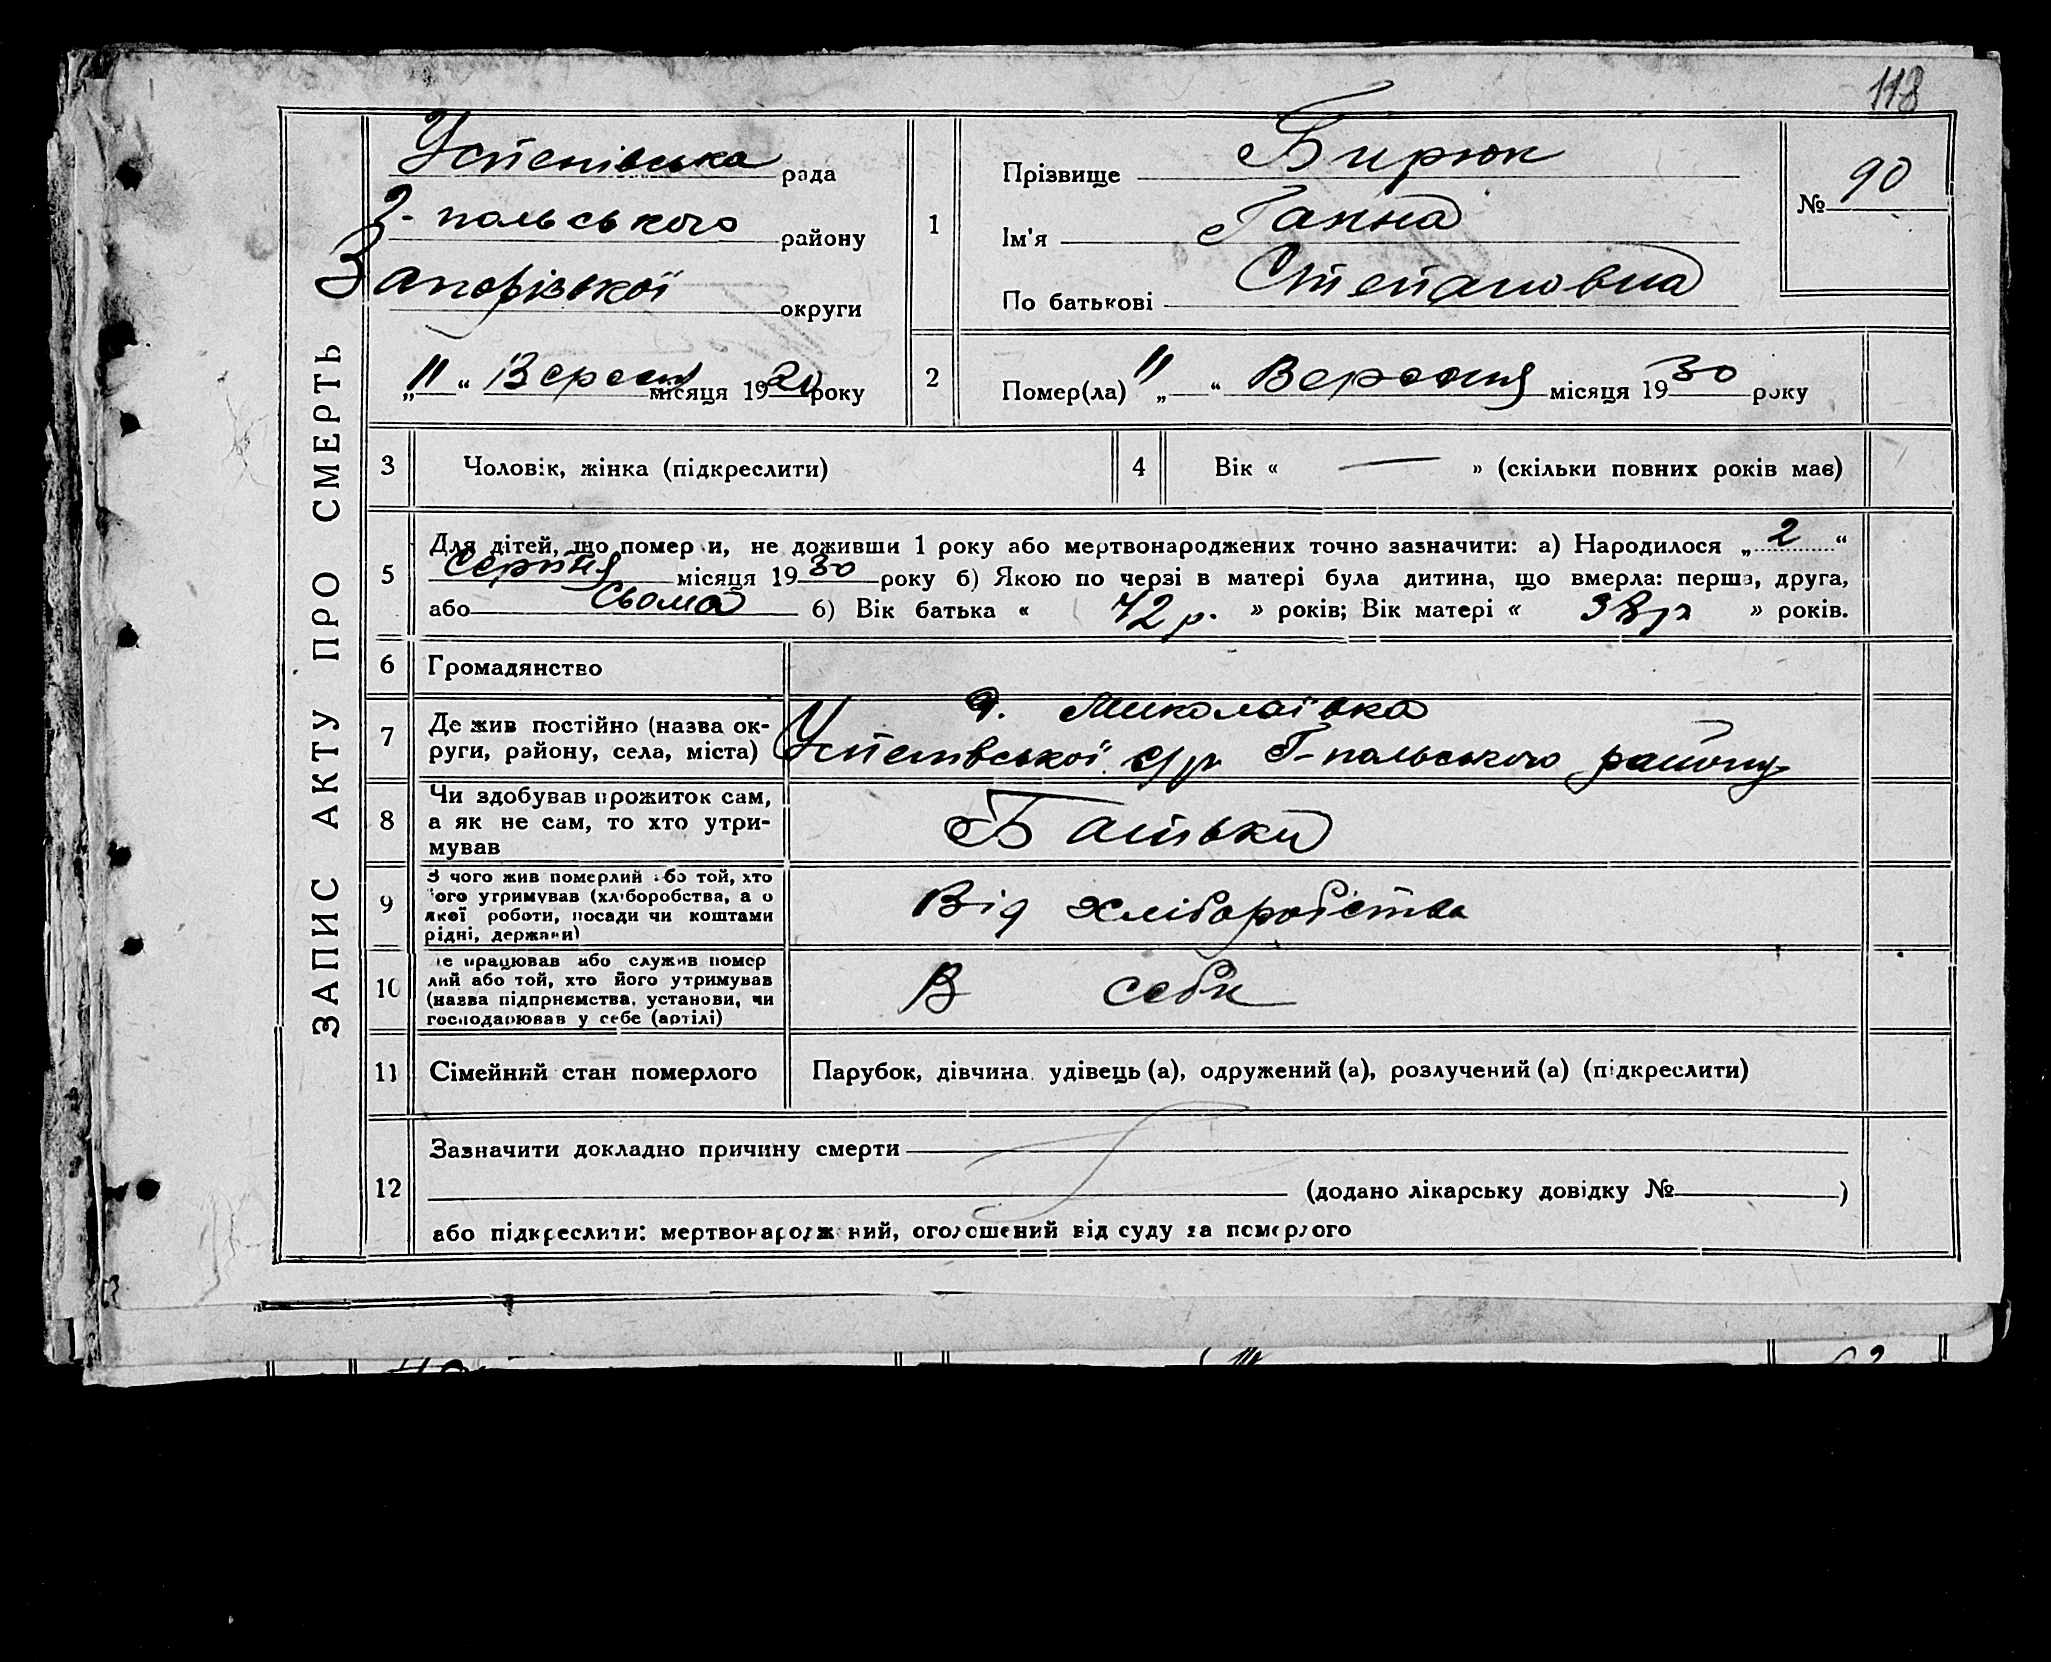 118
ЗАПИС АКТУ ПРО СМЕРТЬ
Успенівська рада
Г-польського району
Запорізької округи
„11“ Вересня місяця 1930 року
1
Прізвище Бирюк
Ім'я Ганна
По батькові Степановна
№ 90
2
Помер(ла) „11“ Вересня місяця 1930 року
3 Чоловік, жінка (підкреслити)
4 Вік « — » (скільки повних років має)
5
Для дітей, що померли, не доживши 1 року або мертвонароджених точно зазначити: а) Народилося „2“
Серпня місяця 1930 року б) Якою по черзі в матері була дитина, що вмерла: перша, друга,
або Сьома б) Вік батька « 42 р. » років; Вік матері « 38 р » років.
6 Громадянство
7
Де жив постійно (назва ок-
руги, району, села, міста)
с. Миколаївка
Успенівської с/р Г-польського району
8
Чи здобував прожиток сам,
а як не сам, то хто утри-
мував
Батьки
9
З чого жив померлий або той, хто
його утримував (хліборобства, а о
якої роботи, посади чи коштами
рідні, держави)
Від хліборобства
10
Де працював або служив помер
лий або той, хто його утримував
(назва підприємства, установи, чи
господарював у себе (артілі)
В себе
11 Сімейний стан померлого
Парубок, дівчина, удівець (а), одружений (а), розлучений (а) (підкреслити)
12
Зазначити докладно причину смерти
(додано лікарську довідку № )
або підкреслити: мертвонароджений, оголошений від суду за померлого